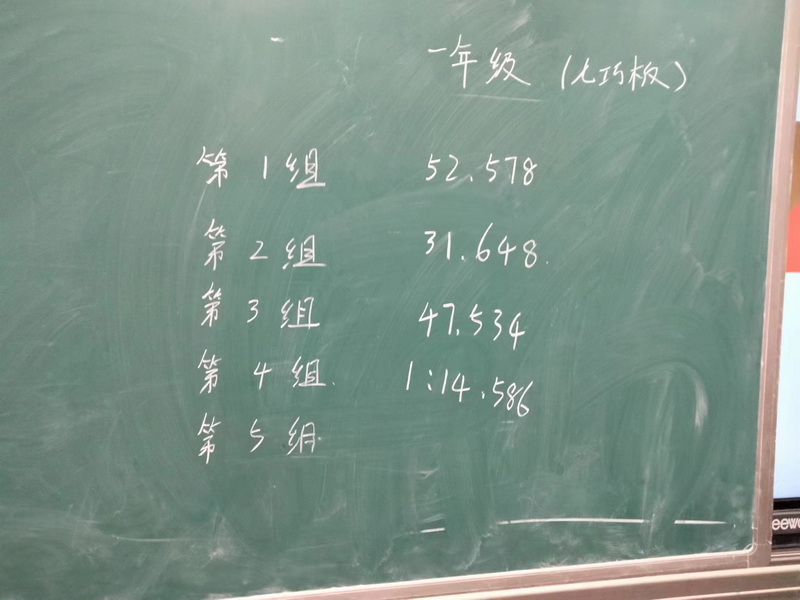 一年级 (七巧板)
第 1 组 52.578
第 2 组 31.648.
第 3 组 47.534
第 4 组. 1:14.586
第 5 组